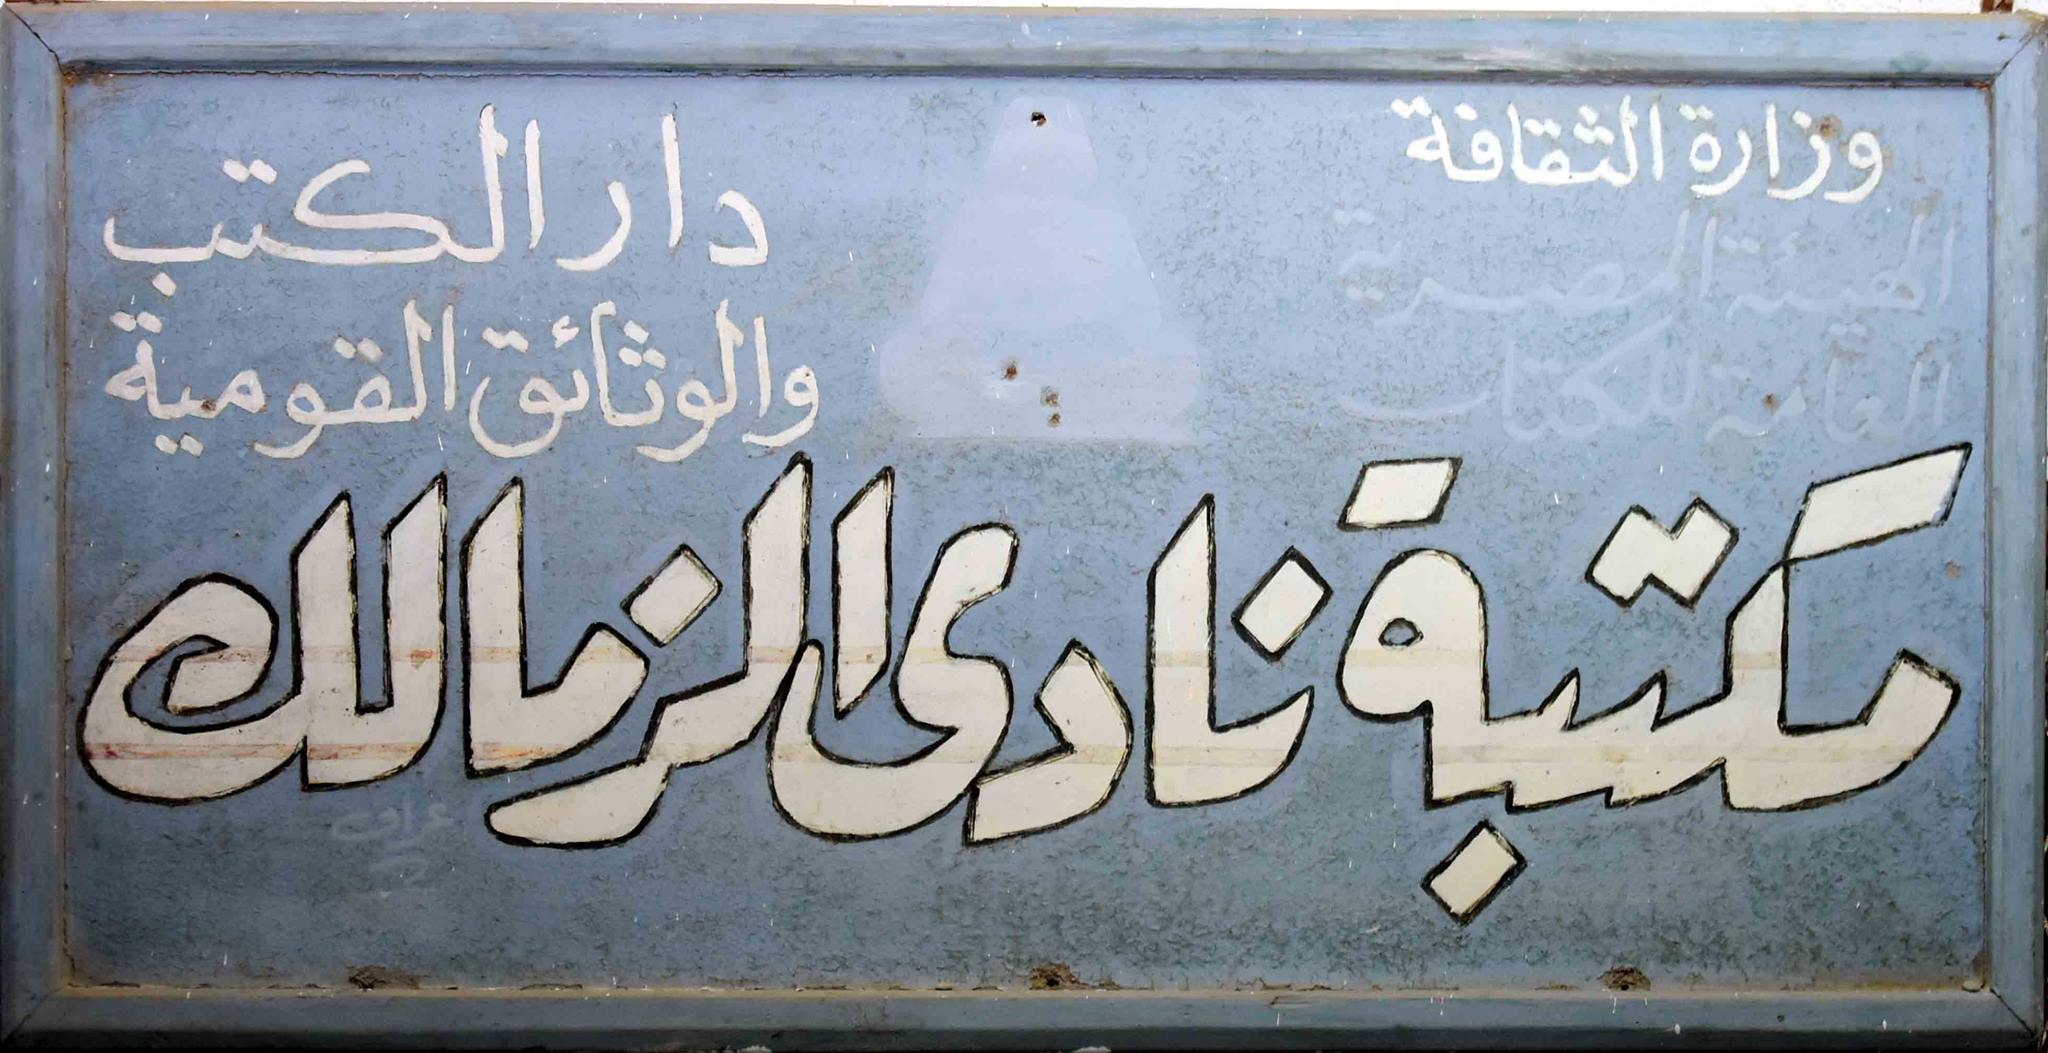 وزارة الثقافة
الهيئة المصرية
العامة للكتاب
دار الكتب
والوثائق القومية
مكتبة نادى الزمالك